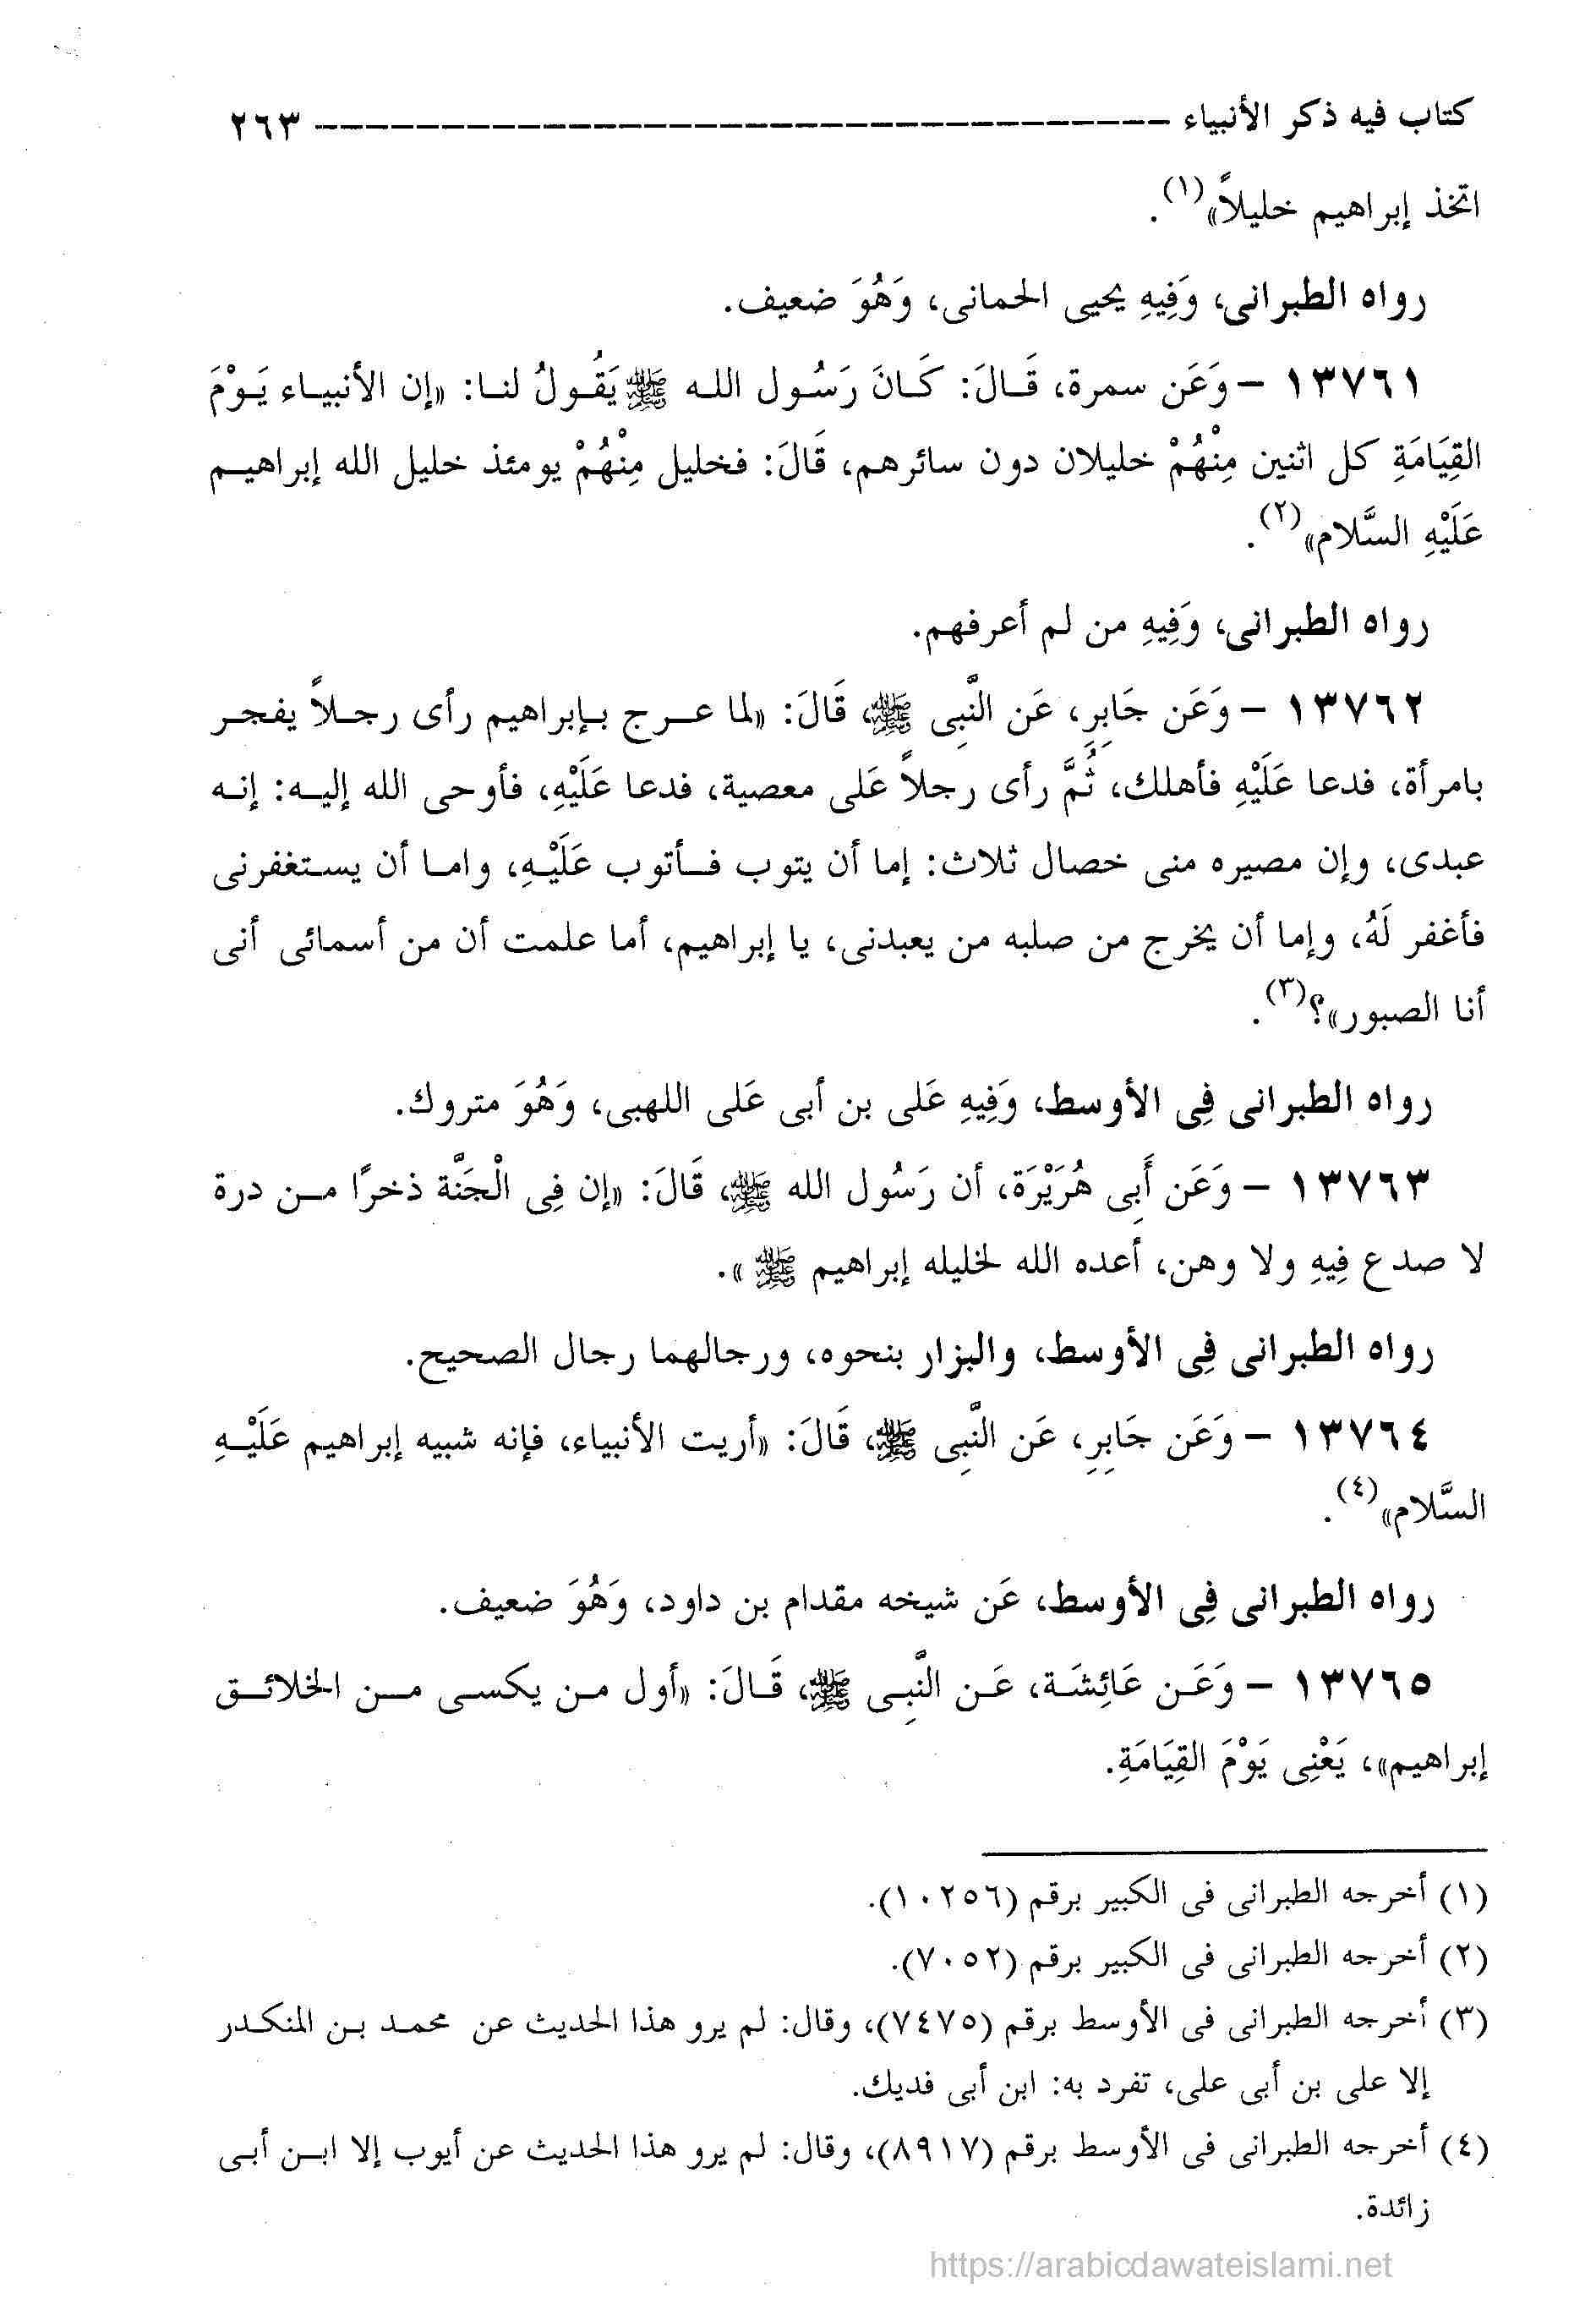 كتاب فيه ذكر الأنبياء ---------------------------------- ٢٦٣
اتخذ إبراهيم خليلاً»(١).
رواه الطبرانى، وَفِيهِ يحيى الحمانى، وَهُوَ ضعيف.
١٣٧٦١ – وَعَن سمرة، قَالَ: كَانَ رَسُول الله ﷺ يَقُولُ لنا: «إن الأنبياء يَوْمَ
القِيَامَةِ كل اثنين مِنْهُمْ خليلان دون سائرهم، قَالَ: فخليل مِنْهُمْ يومئذ خليل الله إبراهيم
عَلَيْهِ السَّلام»(٢).
رواه الطبرانى، وَفِيهِ من لم أعرفهم.
١٣٧٦٢ – وَعَن جَابِرِ، عَن النَّبِى ﷺ، قَالَ: «لما عرج بإبراهيم رأى رجلاً يفجر
بامرأة، فدعا عَلَيْهِ فأهلك، ثُمَّ رأى رجلاً عَلى معصية، فدعا عَلَيْهِ، فأوحى الله إليه: إنه
عبدى، وإن مصيره منى خصال ثلاث: إما أن يتوب فأتوب عَلَيْهِ، واما أن يستغفرنى
فأغفر لَهُ، وإما أن يخرج من صلبه من يعبدنى، يا إبراهيم، أما علمت أن من أسمائى أنى
أنا الصبور»؟(٣).
رواه الطبرانى فِى الأوسط، وَفِيهِ عَلى بن أبى عَلى اللهبى، وَهُوَ متروك.
١٣٧٦٣ – وَعَن أَبِى هُرَيْرَة، أن رَسُول الله ﷺ، قَالَ: «إن فِى الْجَنَّة ذخرًا من درة
لا صدع فِيهِ ولا وهن، أعده الله لخليله إبراهيم ﷺ».
رواه الطبرانى فِى الأوسط، والبزار بنحوه، ورجالهما رجال الصحيح.
١٣٧٦٤ – وَعَن جَابِرِ، عَن النَّبِى ﷺ، قَالَ: «أريت الأنبياء، فإنه شبيه إبراهيم عَلَيْهِ
السَّلام»(٤).
رواه الطبرانى فِى الأوسط، عَن شيخه مقدام بن داود، وَهُوَ ضعيف.
١٣٧٦٥ – وَعَن عَائِشَة، عَن النَّبِى ﷺ، قَالَ: «أول من يكسى من الخلائق
إبراهيم»، يَعْنِى يَوْمَ القِيَامَةِ.
(١) أخرجه الطبرانى فى الكبير برقم (١٠٢٥٦).
(٢) أخرجه الطبرانى فى الكبير برقم (٧٠٥٢).
(٣) أخرجه الطبرانى فى الأوسط برقم (٧٤٧٥)، وقال: لم يرو هذا الحديث عن محمد بن المنكدر
إلا على بن أبى على، تفرد به: ابن أبى فديك.
(٤) أخرجه الطبرانى فى الأوسط برقم (٨٩١٧)، وقال: لم يرو هذا الحديث عن أيوب إلا ابن أبى
زائدة.
https://arabicdawateislami.net